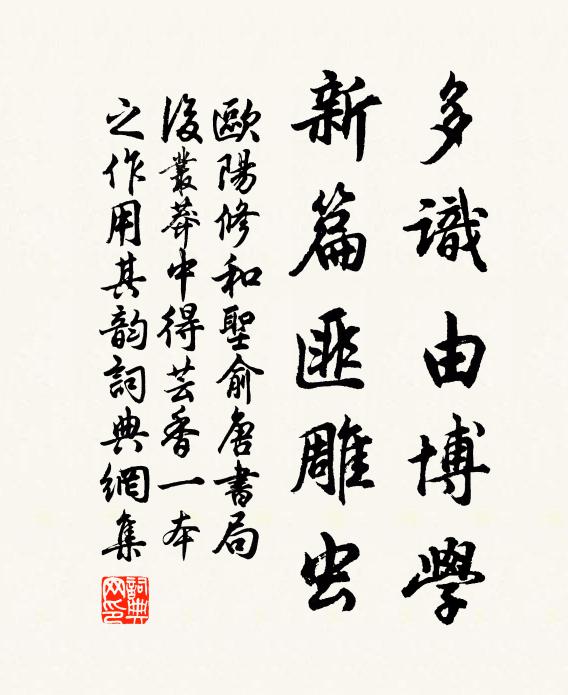 多識由博學
新篇匪雕虫
歐陽修和聖俞唐書局
後叢莽中得芸香一本
之作用其韵詞典網集
詞典网印